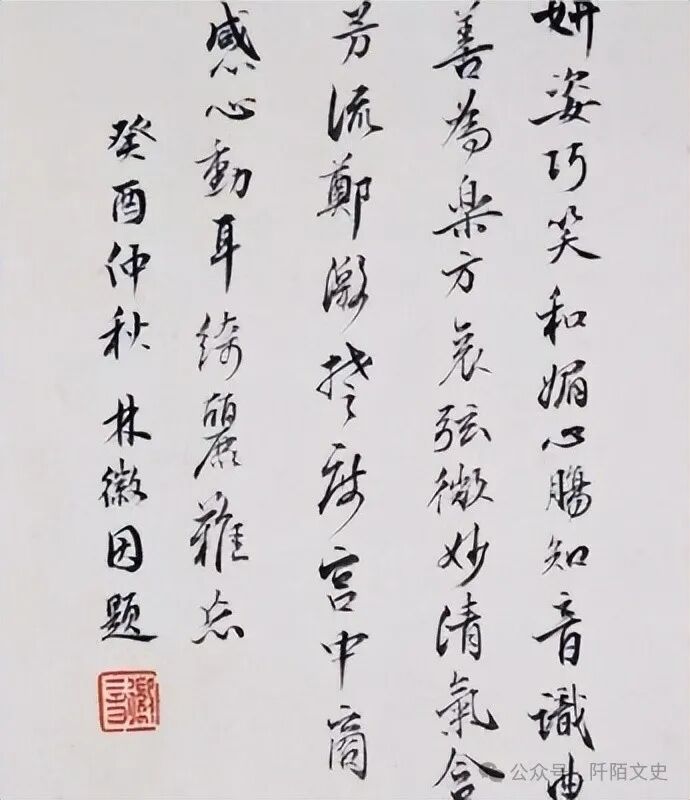 妍姿巧笑和媚心腸知音識曲
善為樂方哀弦微妙清氣含
芳流鄭激楚度宮中商
感心動耳綺麗難忘
癸酉仲秋 林徽因題
公众号 · 阡陌文史